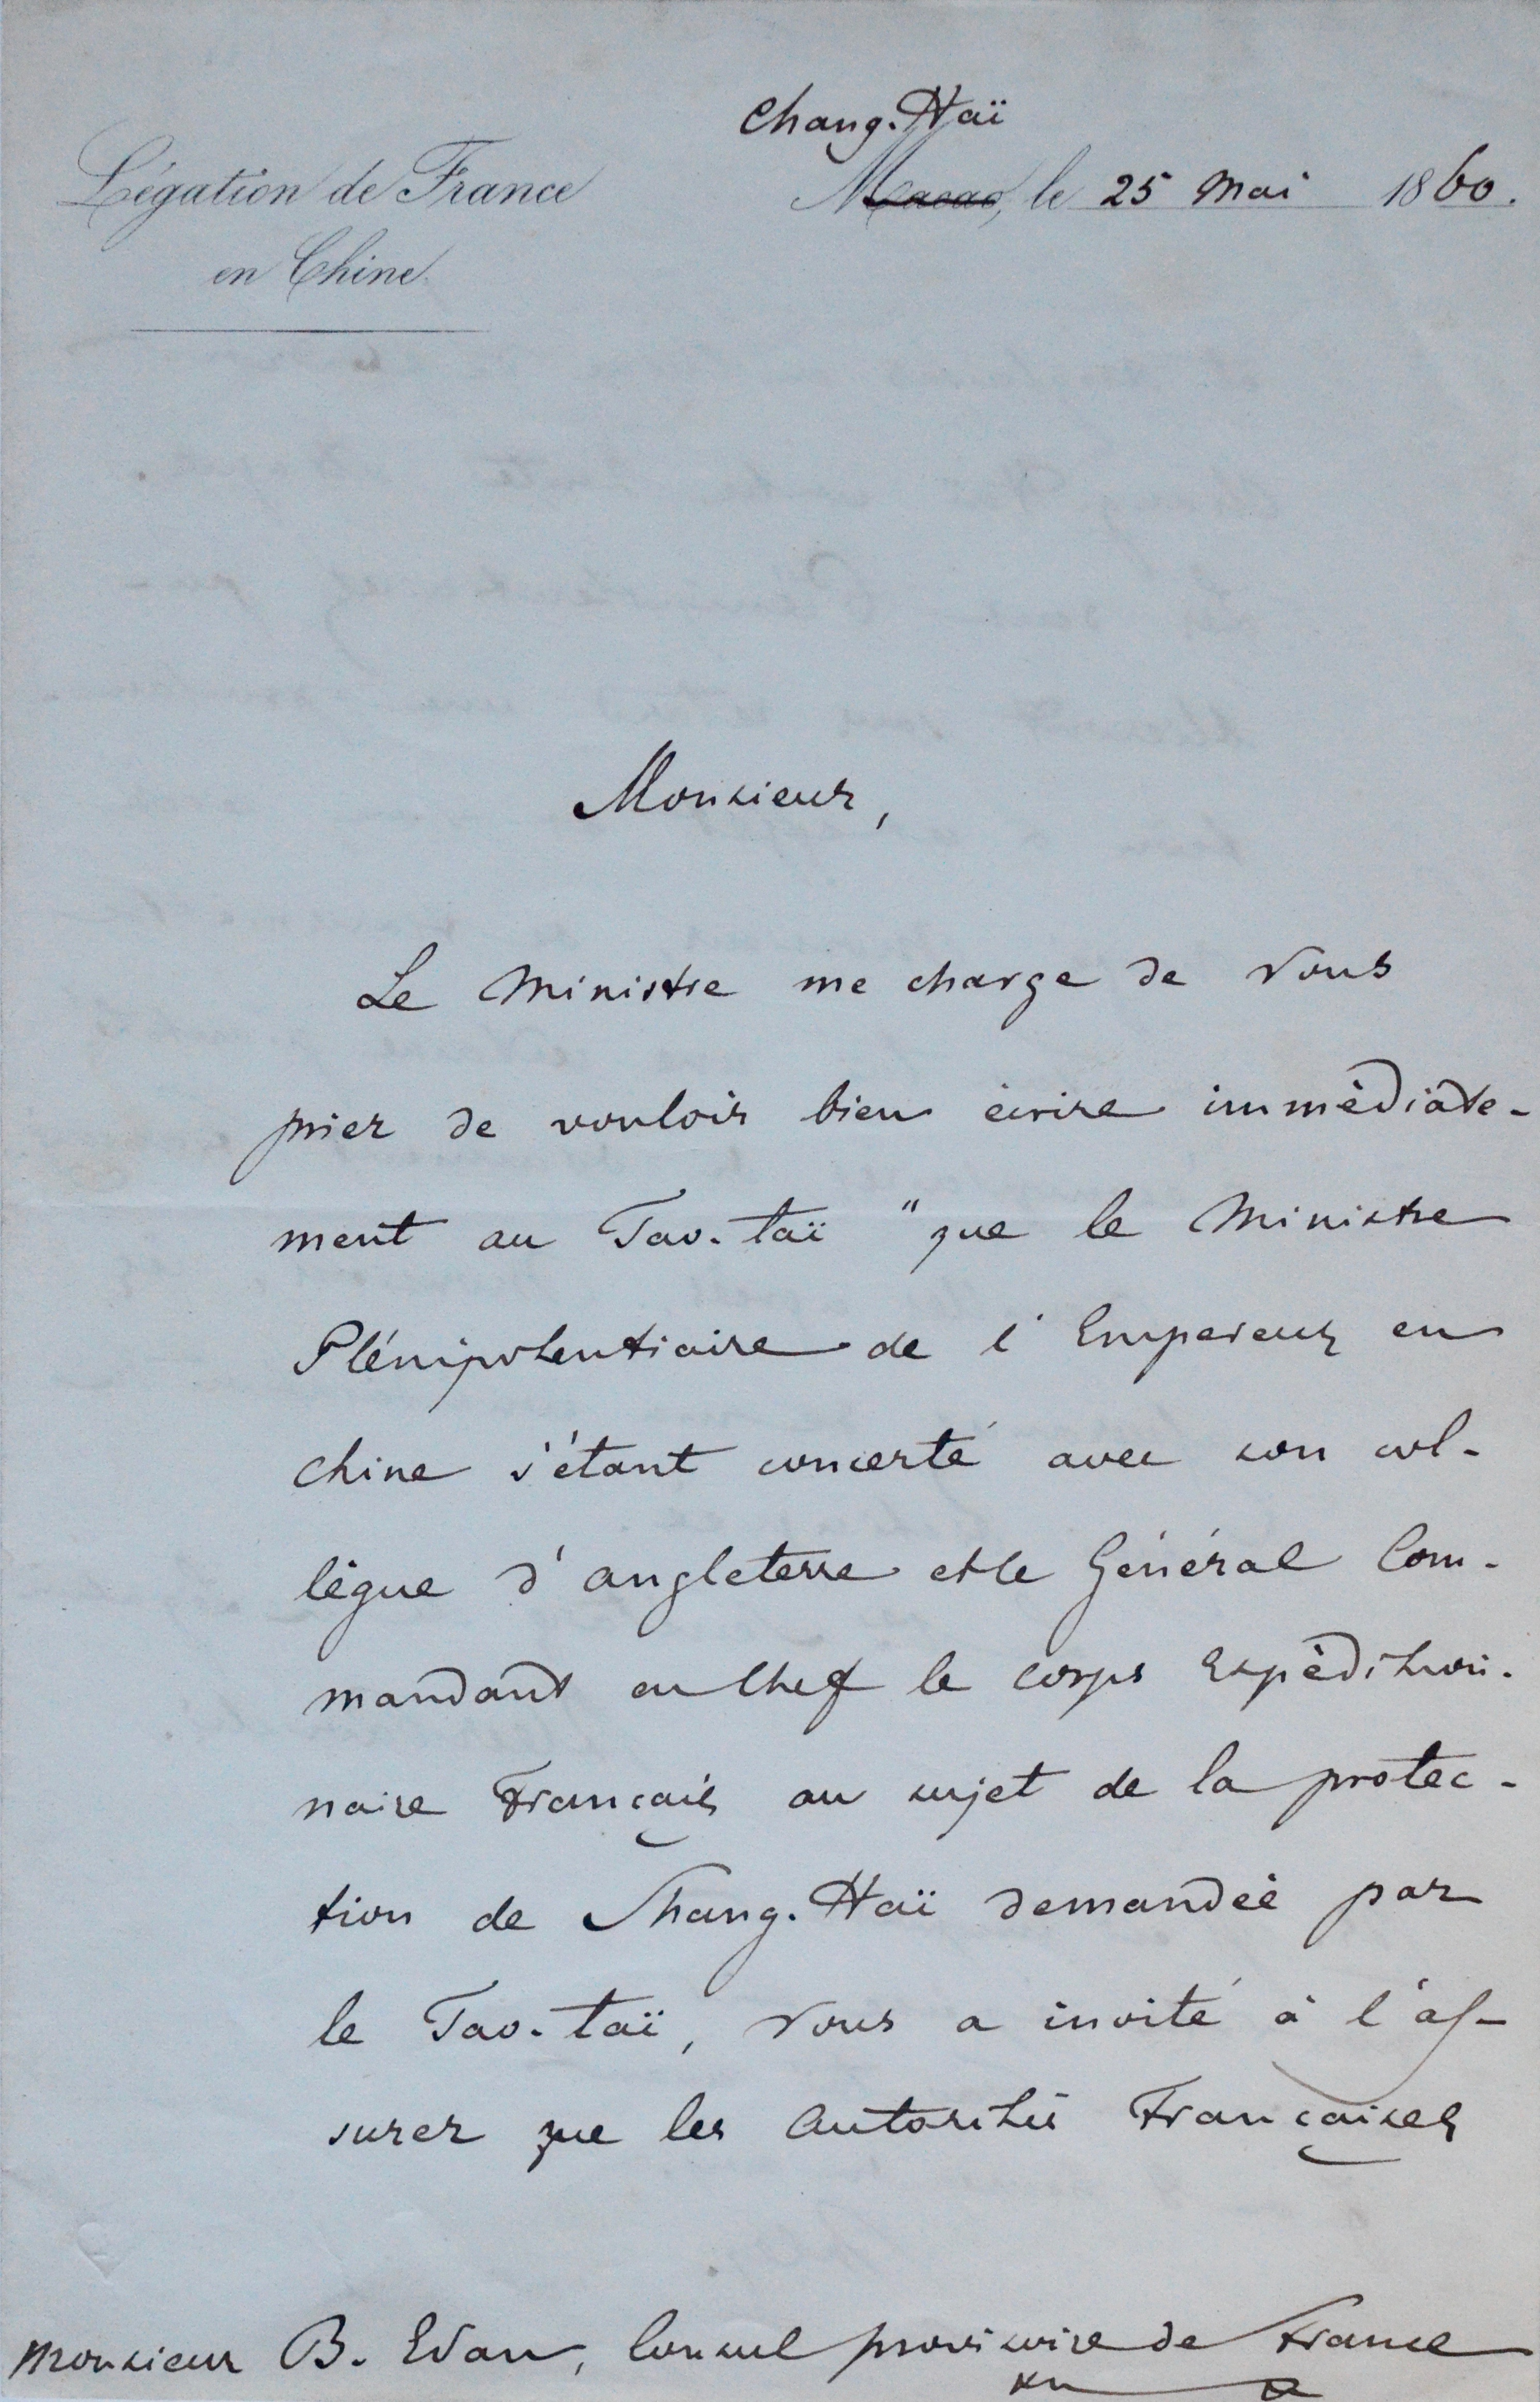 Chang-Haï
Légation de France
en Chine
Macao, le 25 Mai 1860.
Monsieur,
Le Ministre me charge de vous
prier de vouloir bien écrire immédiate-
ment au Tao-taï "que le Ministre
Plénipotentiaire de l'Empereur en
Chine s'étant concerté avec son col-
lègue d'angleterre et le Général Com-
mandant en Chef le corps Expédition-
naire Français au sujet de la protec-
tion de Shang-Haï demandée par
le Tao-taï, vous a invité à l'as-
surer que les Autorités Françaises
Monsieur B. Edan, Consul provisoire de France